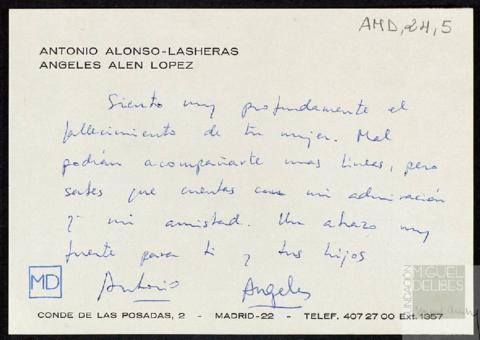 AMD, 24, 5
ANTONIO ALONSO-LASHERAS
ANGELES ALEN LOPEZ
Siento muy profundamente el
fallecimiento de tu mujer. Mal
podrán acompañarte unas líneas, pero
sabes que cuentas con mi admiración
y mi amistad. Un abrazo muy
fuerte para ti y tus hijos
Antonio Angeles
MD
CONDE DE LAS POSADAS, 2 - MADRID-22 - TELEF. 407 27 00 Ext. 1357
FUNDACIÓN
MIGUEL
DELIBES